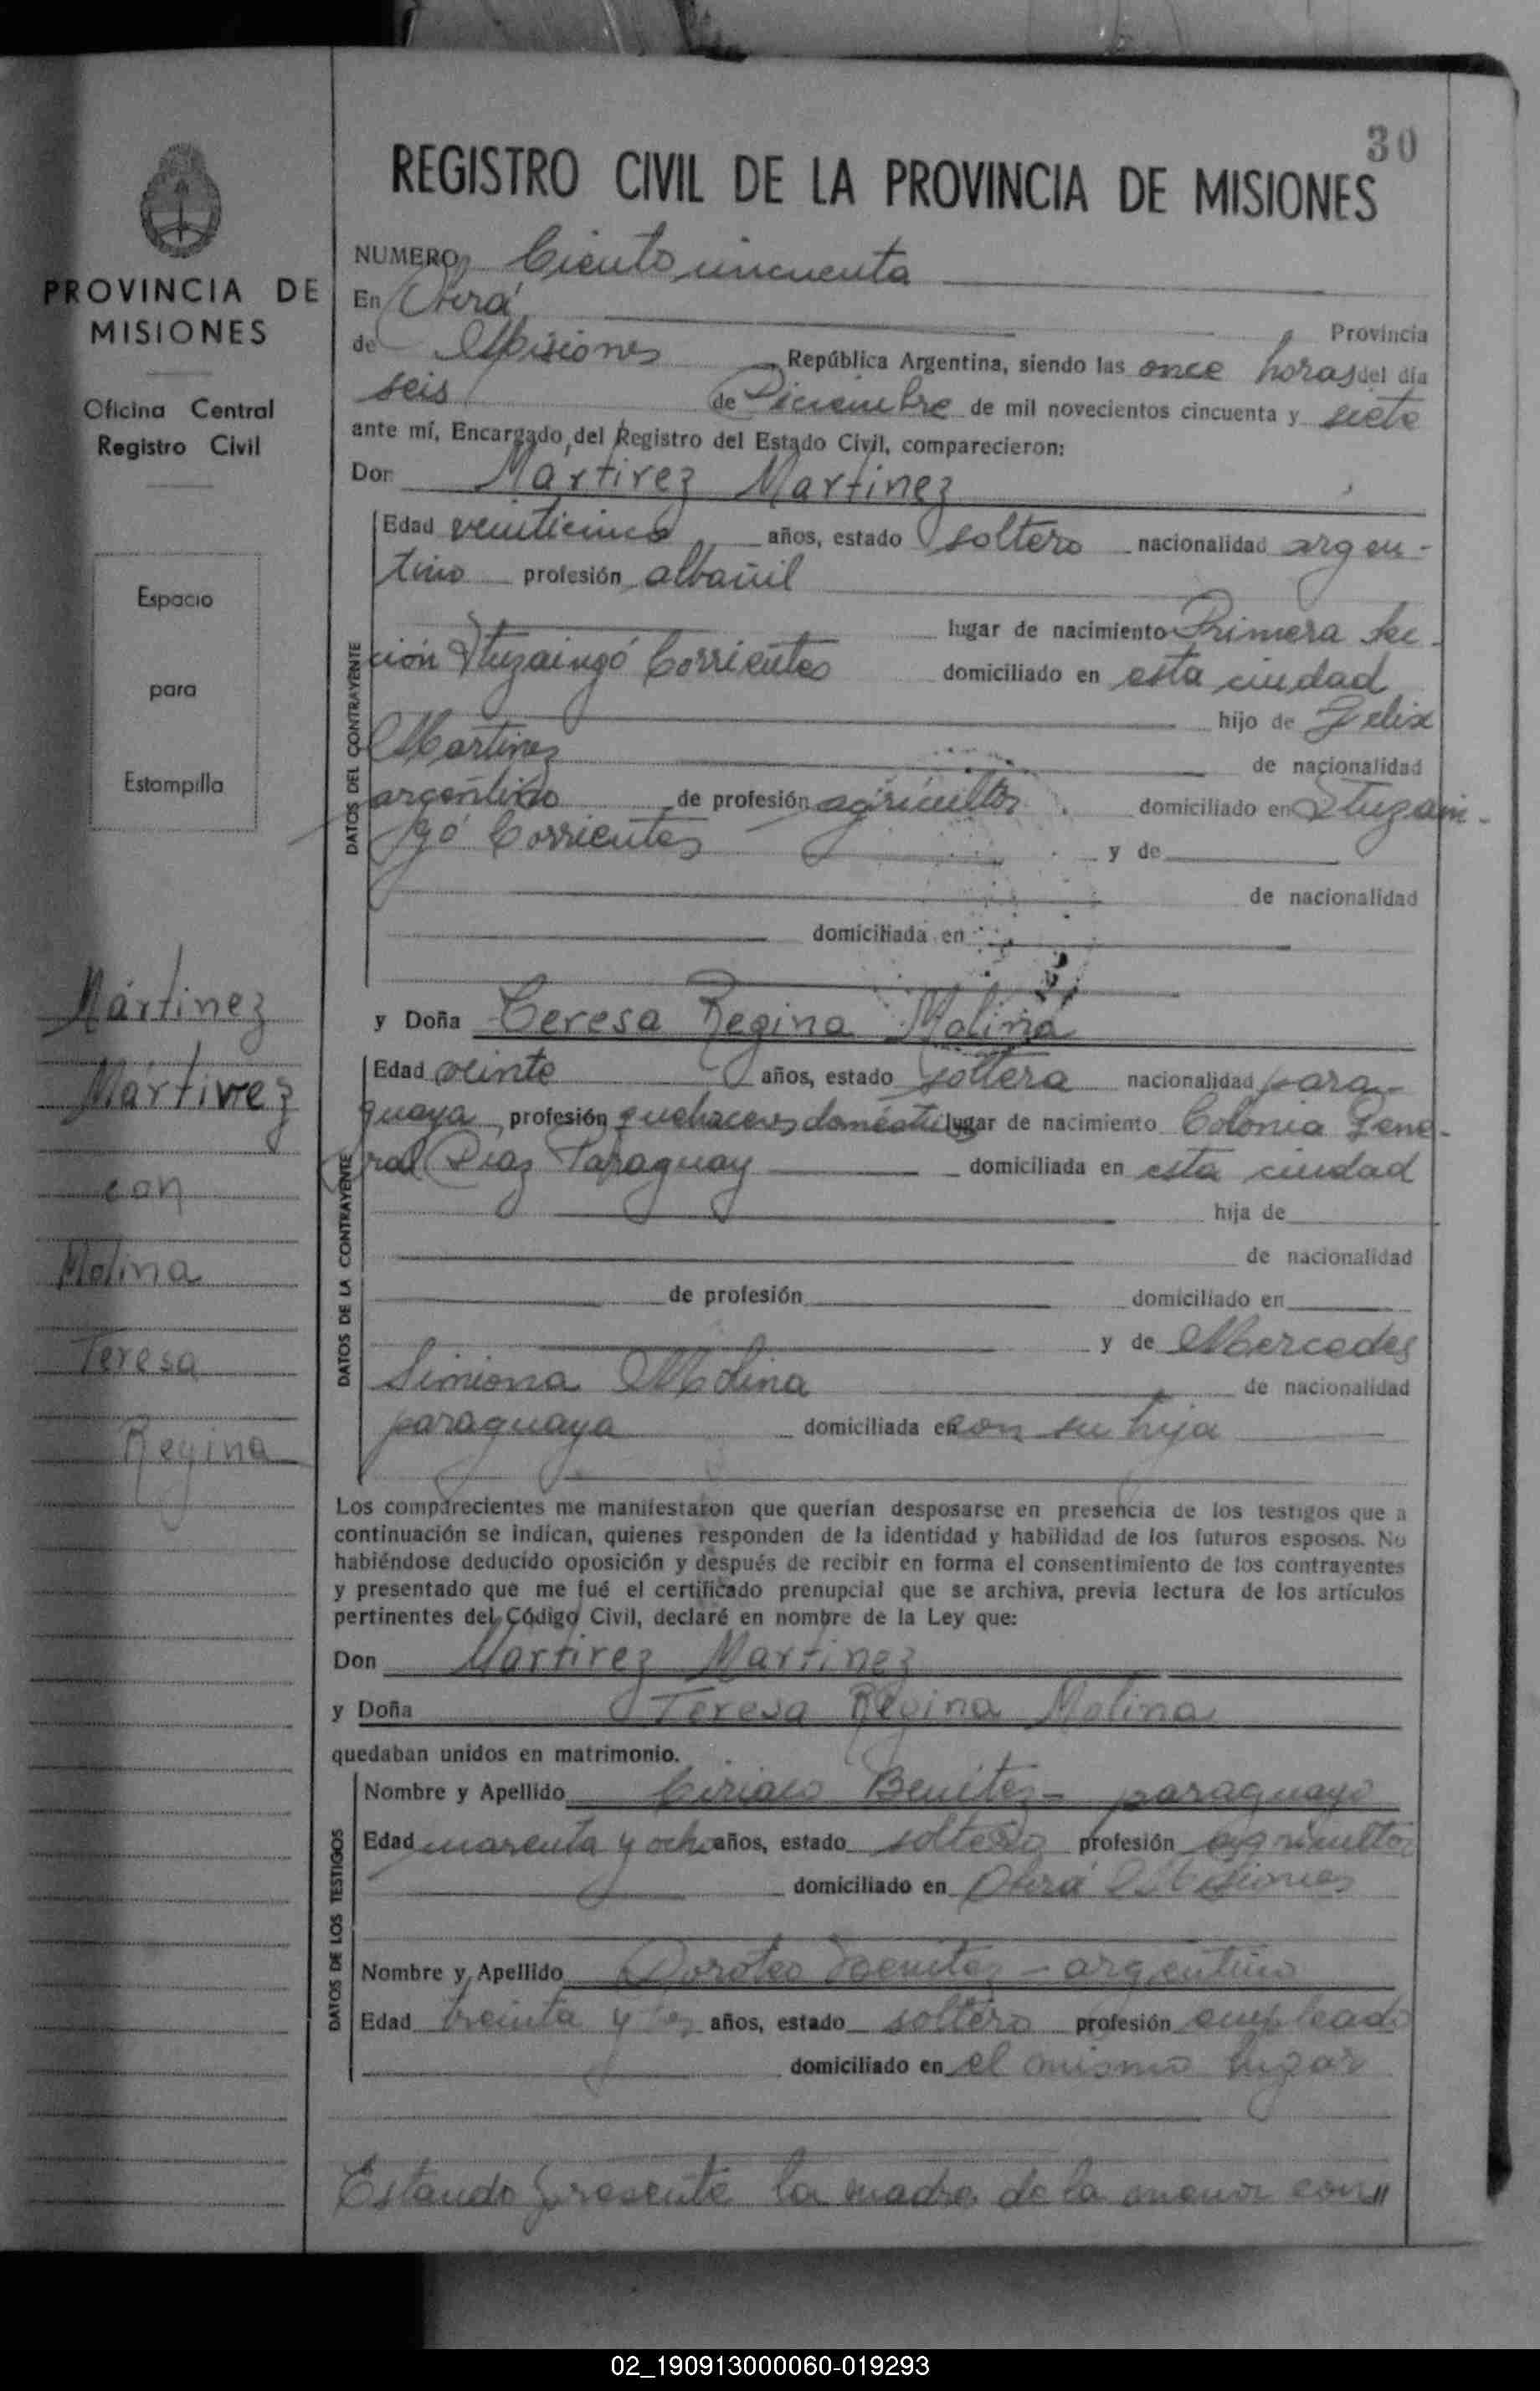 30
REGISTRO CIVIL DE LA PROVINCIA DE MISIONES
PROVINCIA DE
MISIONES
Oficina Central
Registro Civil
Espacio
para
Estampilla
Martinez
Martirez
con
Molina
Teresa
Regina
NUMERO Ciento cincuenta
En Oberá Provincia
de Misiones República Argentina, siendo las once horas del día
seis de Diciembre de mil novecientos cincuenta y siete
ante mí, Encargado del Registro del Estado Civil, comparecieron:
Don Martirez Martinez
DATOS DEL CONTRAYENTE
Edad veinticinco años, estado soltero nacionalidad argen-
tino profesión albañil
lugar de nacimiento Primera Sec-
ción Ituzaingó Corrientes domiciliado en esta ciudad
hijo de Felix
Martinez de nacionalidad
argentino de profesión agricultor domiciliado en Ituzain-
gó Corrientes y de
de nacionalidad
domiciliada en
y Doña Teresa Regina Molina
DATOS DE LA CONTRAYENTE
Edad veinte años, estado soltera nacionalidad para-
guaya profesión quehaceres domésticos lugar de nacimiento Colonia Gene-
ral Diaz Paraguay domiciliada en esta ciudad
hija de
de nacionalidad
de profesión domiciliado en
y de Mercedes
Simiona Molina de nacionalidad
paraguaya domiciliada en con su hija
Los comparecientes me manifestaron que querían desposarse en presencia de los testigos que a
continuación se indican, quienes responden de la identidad y habilidad de los futuros esposos. No
habiéndose deducido oposición y después de recibir en forma el consentimiento de los contrayentes
y presentado que me fué el certificado prenupcial que se archiva, previa lectura de los artículos
pertinentes del Código Civil, declaré en nombre de la Ley que:
Don Martirez Martinez
y Doña Teresa Regina Molina
quedaban unidos en matrimonio.
DATOS DE LOS TESTIGOS
Nombre y Apellido Ciriaco Benitez - paraguayo
Edad cuarenta y ocho años, estado soltero profesión agricultor
domiciliado en Oberá Misiones
Nombre y Apellido Doroteo Benitez - argentino
Edad treinta y años, estado soltero profesión empleado
domiciliado en el mismo lugar
Estando presente la madre de la menor con//
02_190913000060-019293